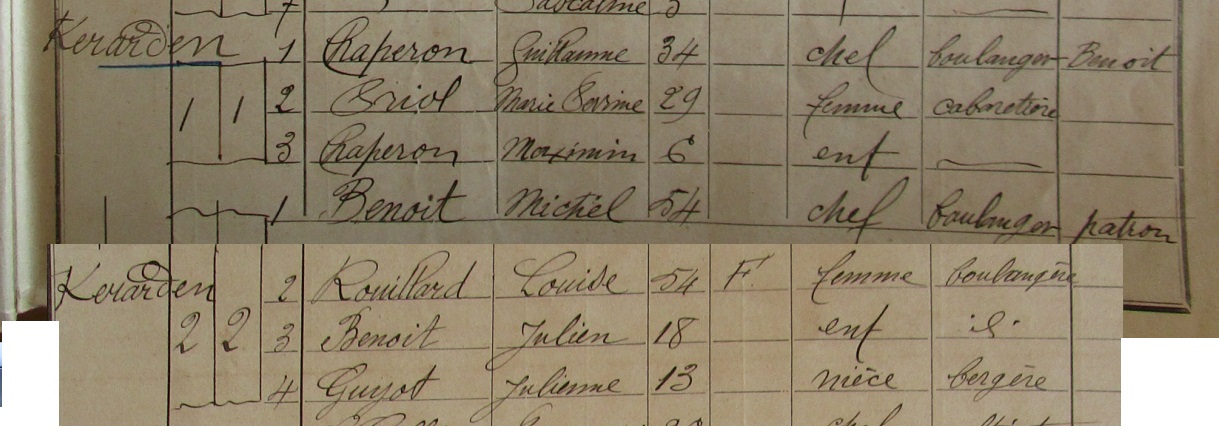 7 5
Kerarden 1 Chaperon Guillaume 34 chef boulanger Benoit
1 1 2 Briol Marie Perrine 29 femme cabaretière
3 Chaperon Maximin 6 enf
1 Benoit Michel 54 chef boulanger patron
Kerarden 2 Rouillard Louise 54 F. femme boulangère
2 2 3 Benoit Julien 18 enf id.
4 Guyot Julienne 13 nièce bergère